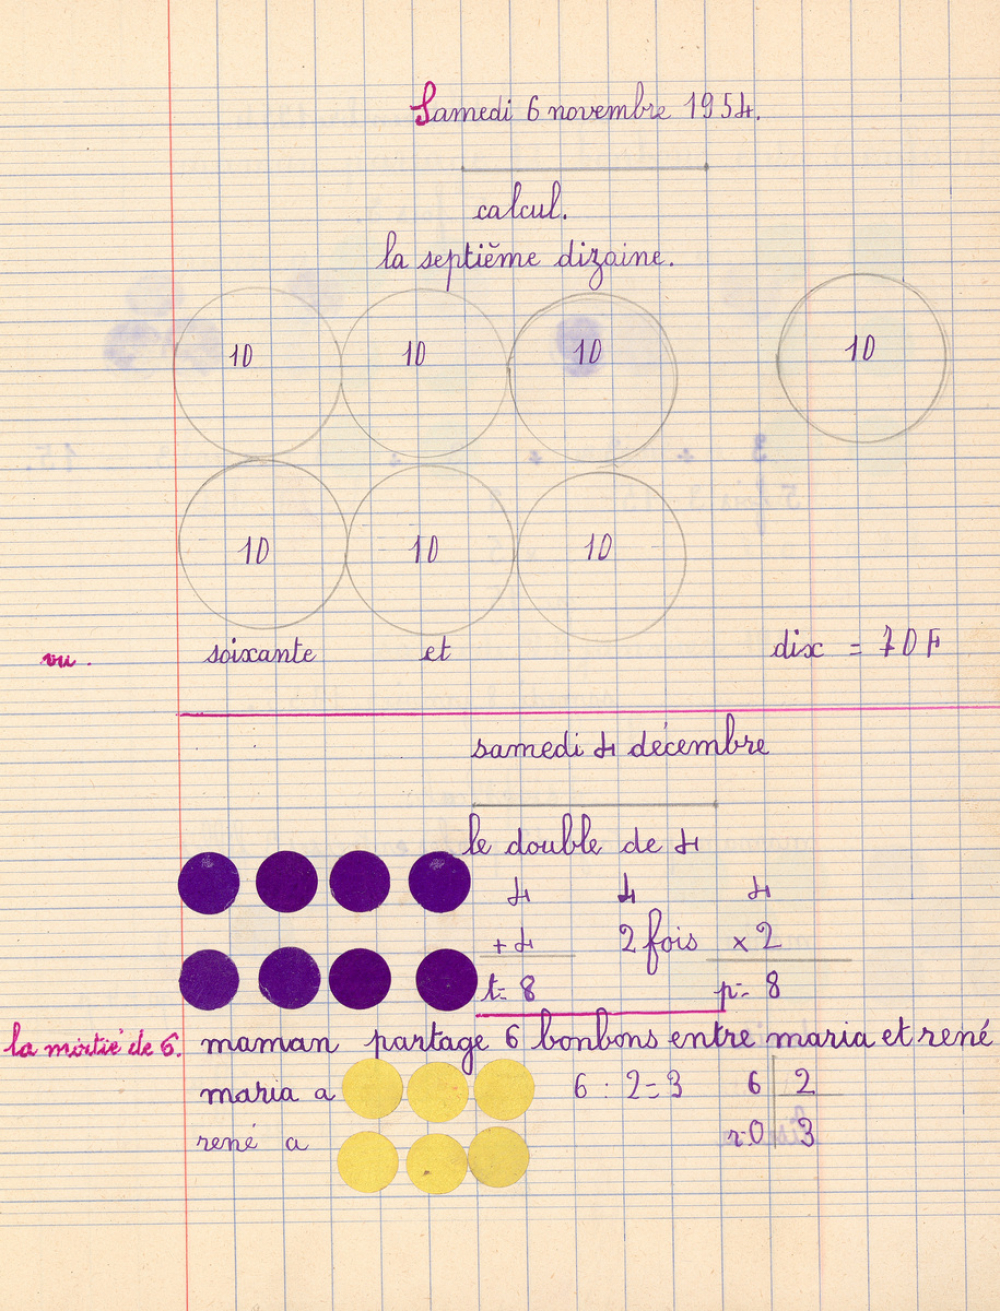 Samedi 6 novembre 1954.
calcul.
la septième dizaine.
10 10 10 10
10 10 10
vu. soixante et dix = 70 F
samedi 4 décembre
le double de 4
4 4 4
+ 4 2 fois x 2
t= 8 p= 8
la moitié de 6. maman partage 6 bonbons entre maria et rené
maria a 6 : 2 = 3 6 2
rené a r:0 3